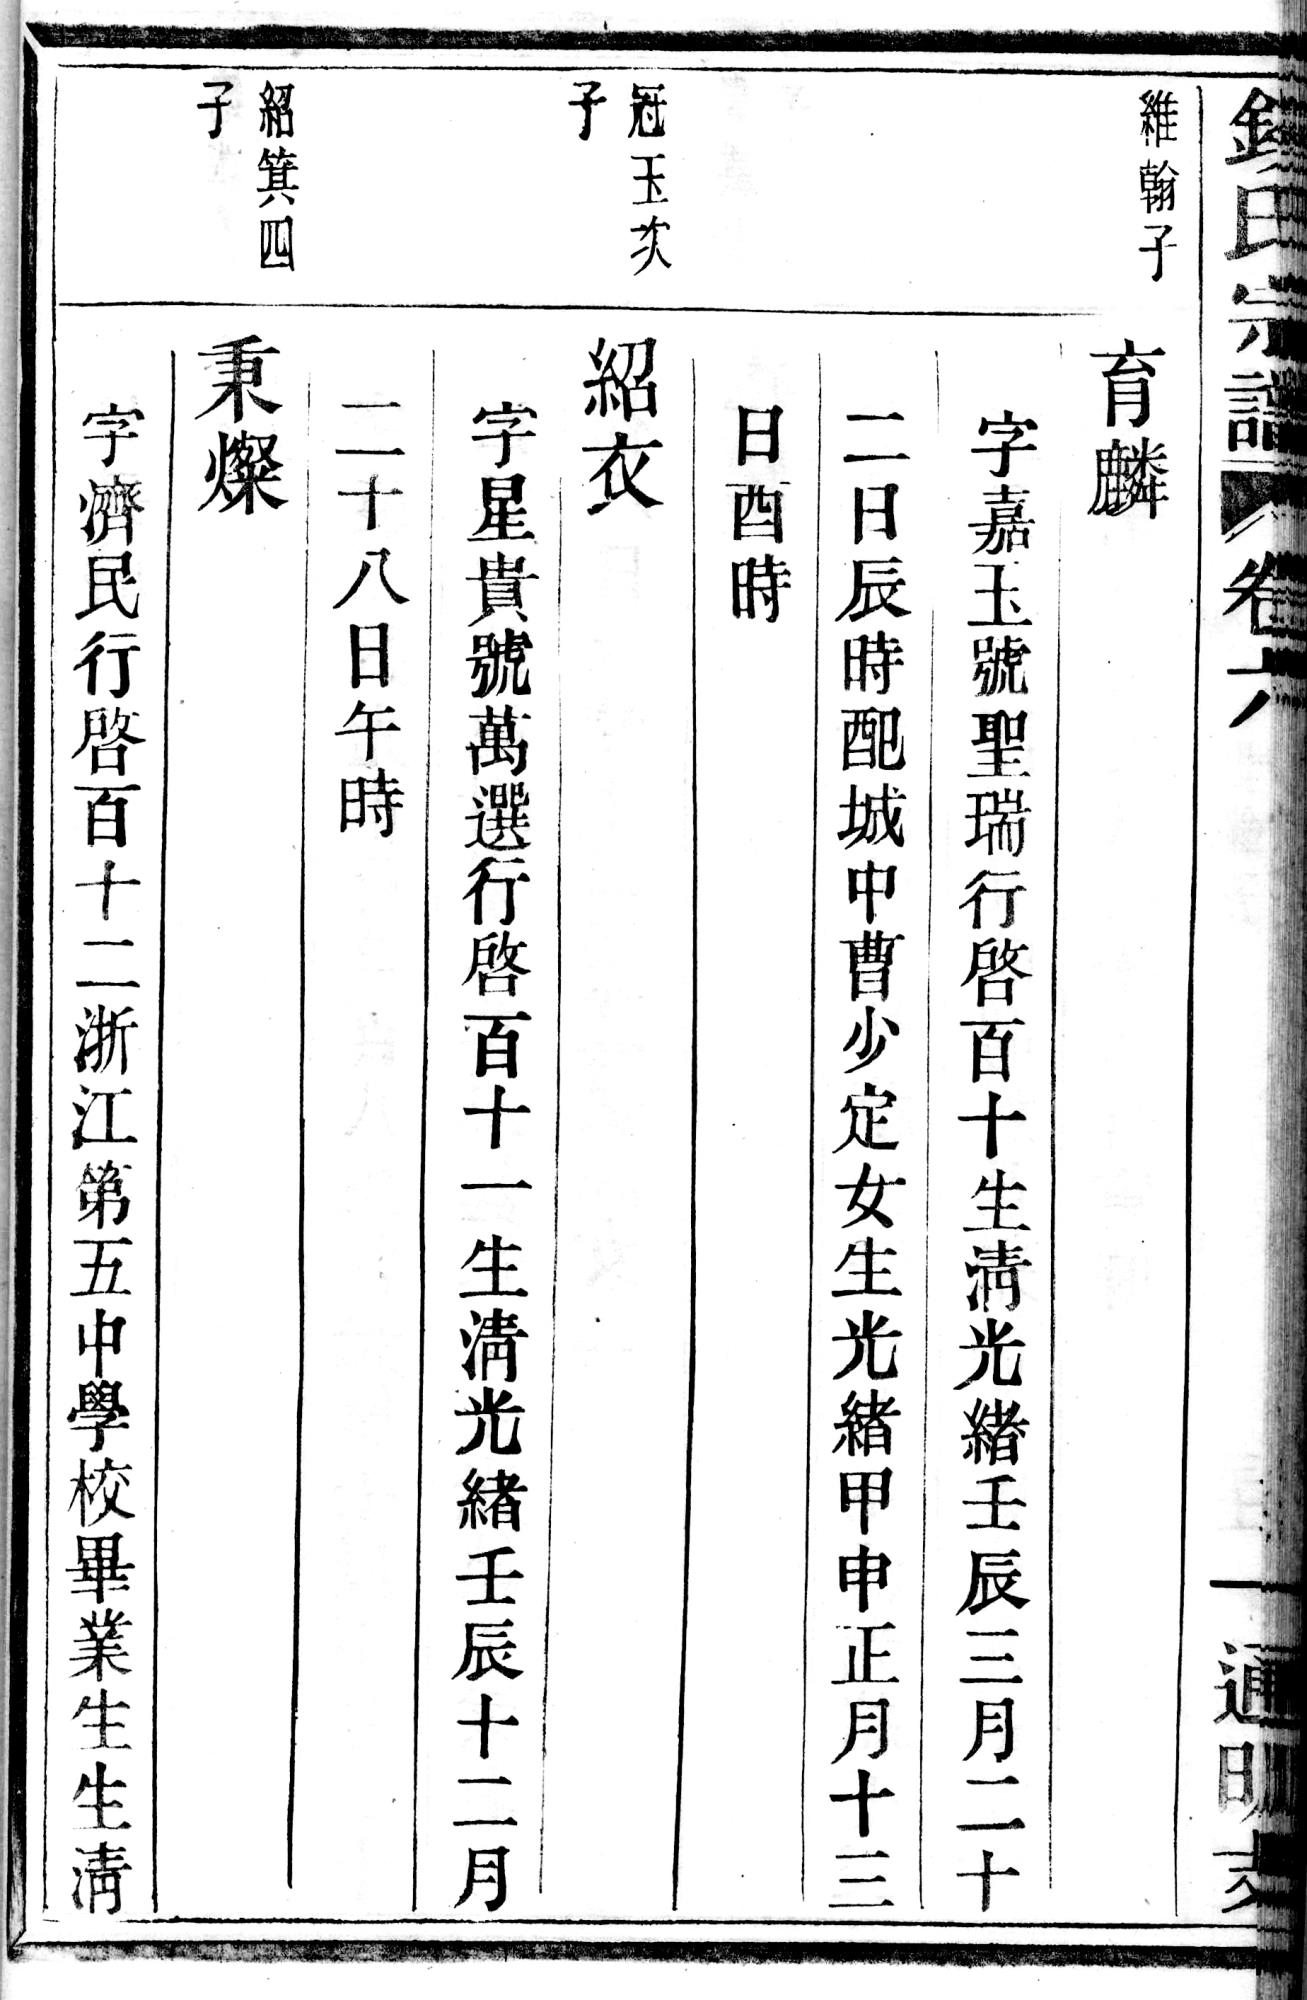 氏宗譜 卷六 通明支
維翰子
育麟
字嘉玉號聖瑞行啓百十生淸光緖壬辰三月二十
二日辰時配城中曹少定女生光緖甲申正月十三
日酉時
冠玉次
子
紹衣
字星貴號萬選行啓百十一生淸光緖壬辰十二月
二十八日午時
紹箕四
子
秉燦
字濟民行啓百十二浙江第五中學校畢業生生淸